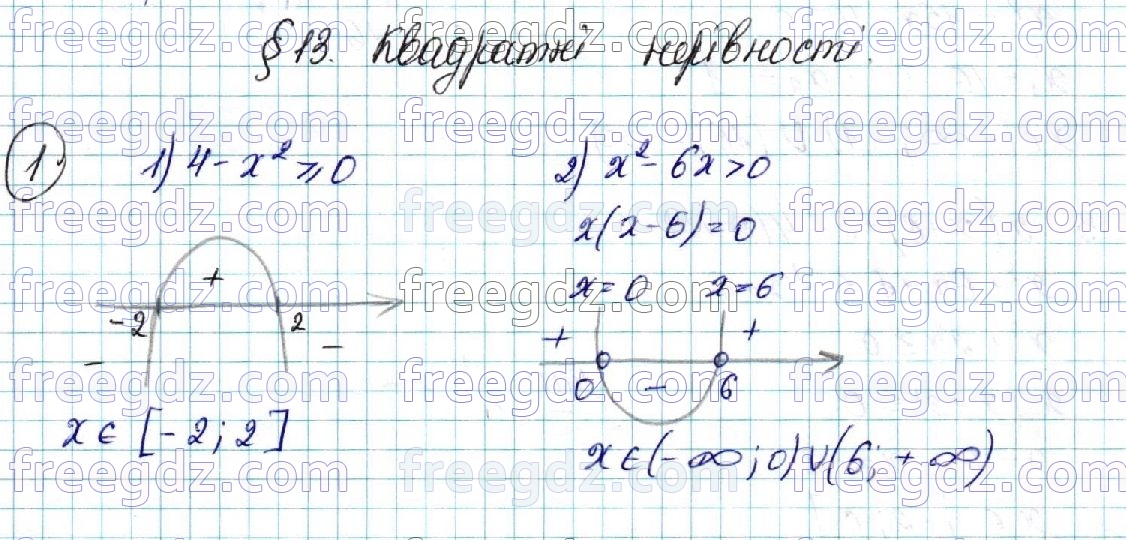 § 13. Квадратні нерівності.
1. 1) 4 - x² ⩾ 0
+
-2 2
- -
x ∈ [-2; 2]
2) x² - 6x > 0
x(x - 6) = 0
x = 0 x = 6
+ +
0 - 6
x ∈ (-∞; 0) ∪ (6; +∞)
freegdz.com freegdz.com freegdz.com
freegdz.com freegdz.com freegdz.com
freegdz.com freegdz.com freegdz.com
freegdz.com freegdz.com freegdz.com
freegdz.com freegdz.com freegdz.com
freegdz.com freegdz.com freegdz.com